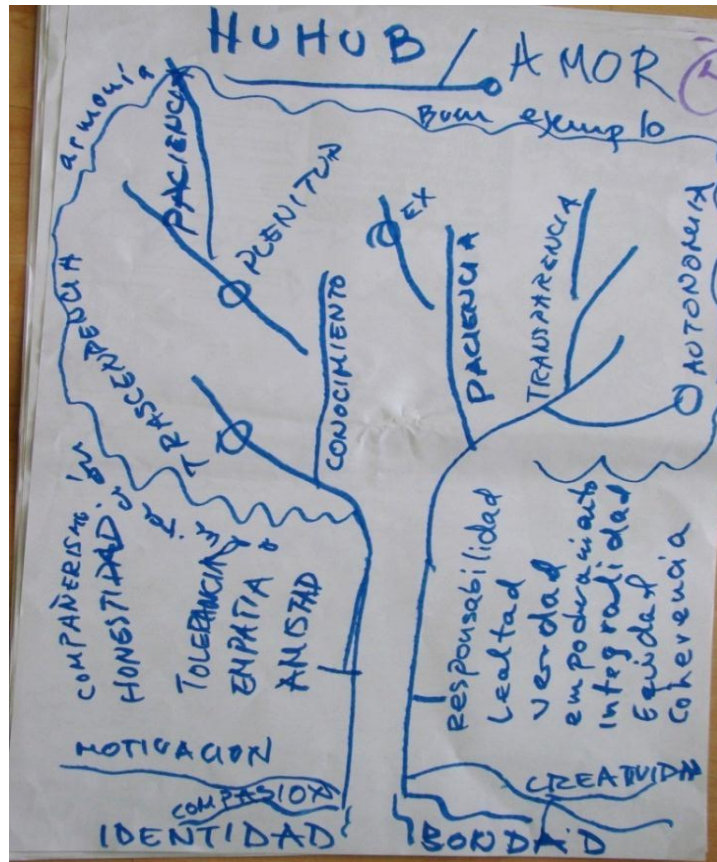 HUHUB
AMOR
Buen ejemplo
armonia
PACIENCIA
PLENITUD
TRASCENDENCIA
CONOCIMIENTO
EX
PACIENCIA
TRANSPARENCIA
AUTONOMIA
COMPAÑERISMO
HONESTIDAD
TOLERANCIA
EMPATIA
AMISTAD
Responsabilidad
Lealtad
Verdad
empoderamiento
integralidad
Equidad
Coherencia
MOTIVACION
COMPASION
CREATIVIDAD
IDENTIDAD
BONDAD